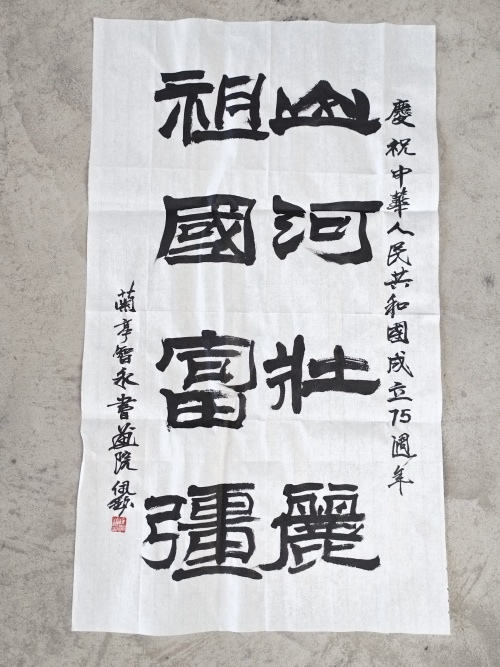 慶祝中華人民共和國成立75週年
山河壯麗
祖國富彊
蘭亭智永書畫院